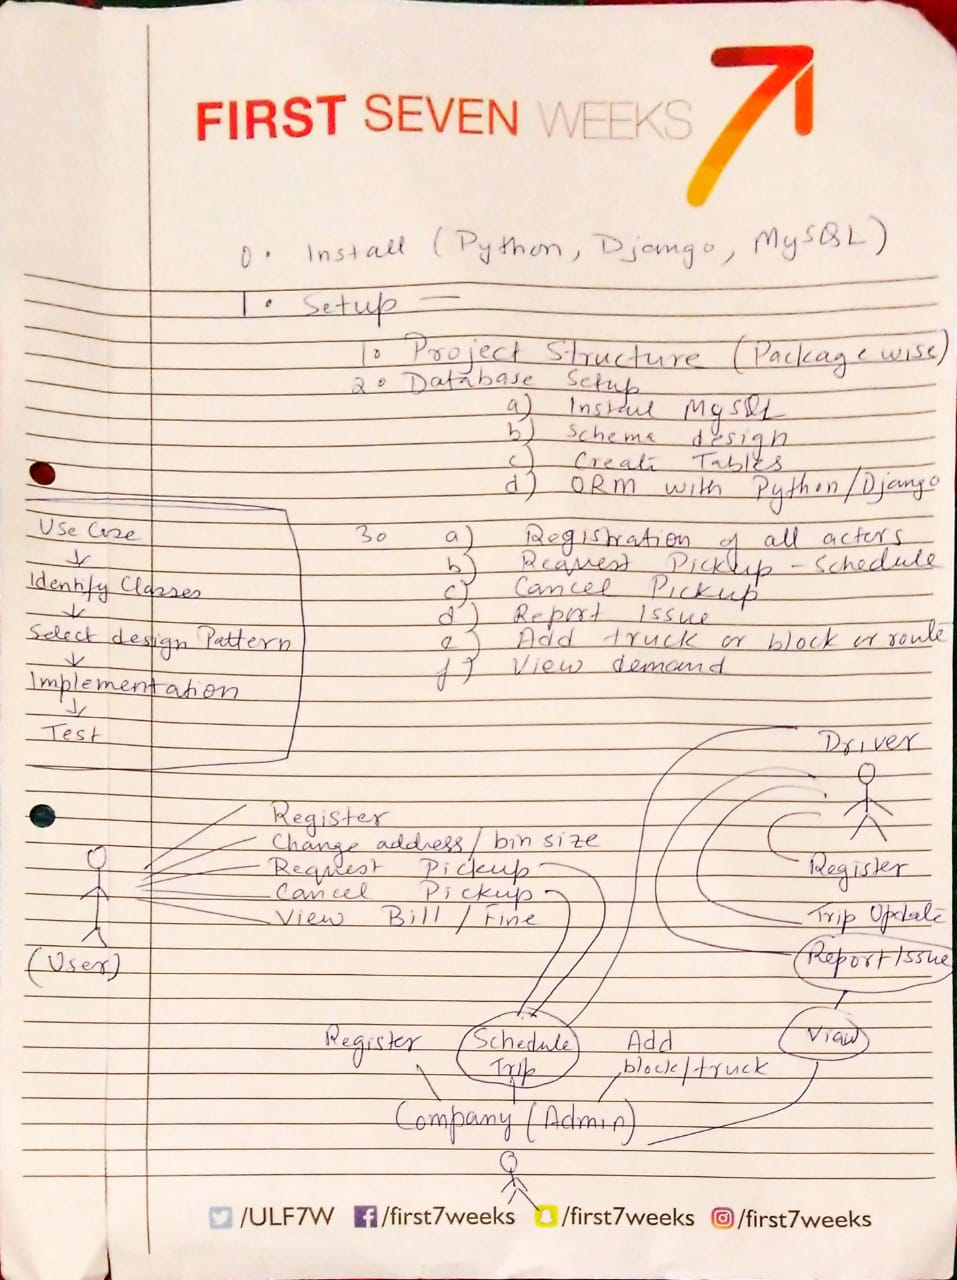 FIRST SEVEN WEEKS 7
0. Install (Python, Django, MySQL)
1. Setup —
1. Project Structure (Package wise)
2. Database Setup
a) Install MySQL
b) Schema design
c) Create Tables
d) ORM with Python/Django
3. a) Registration of all actors
b) Request Pickup - Schedule
c) Cancel Pickup
d) Report Issue
e) Add truck or block or route
f) View demand
Use Case
↓
Identify Classes
↓
Select design Pattern
↓
Implementation
↓
Test
Driver
Register
Trip Update
Report Issue
View
Register
Change address/bin size
Request Pickup
Cancel Pickup
View Bill / Fine
(User)
Register
Schedule
Trip
Add
block/truck
Company (Admin)
/ULF7W /first7weeks /first7weeks /first7weeks